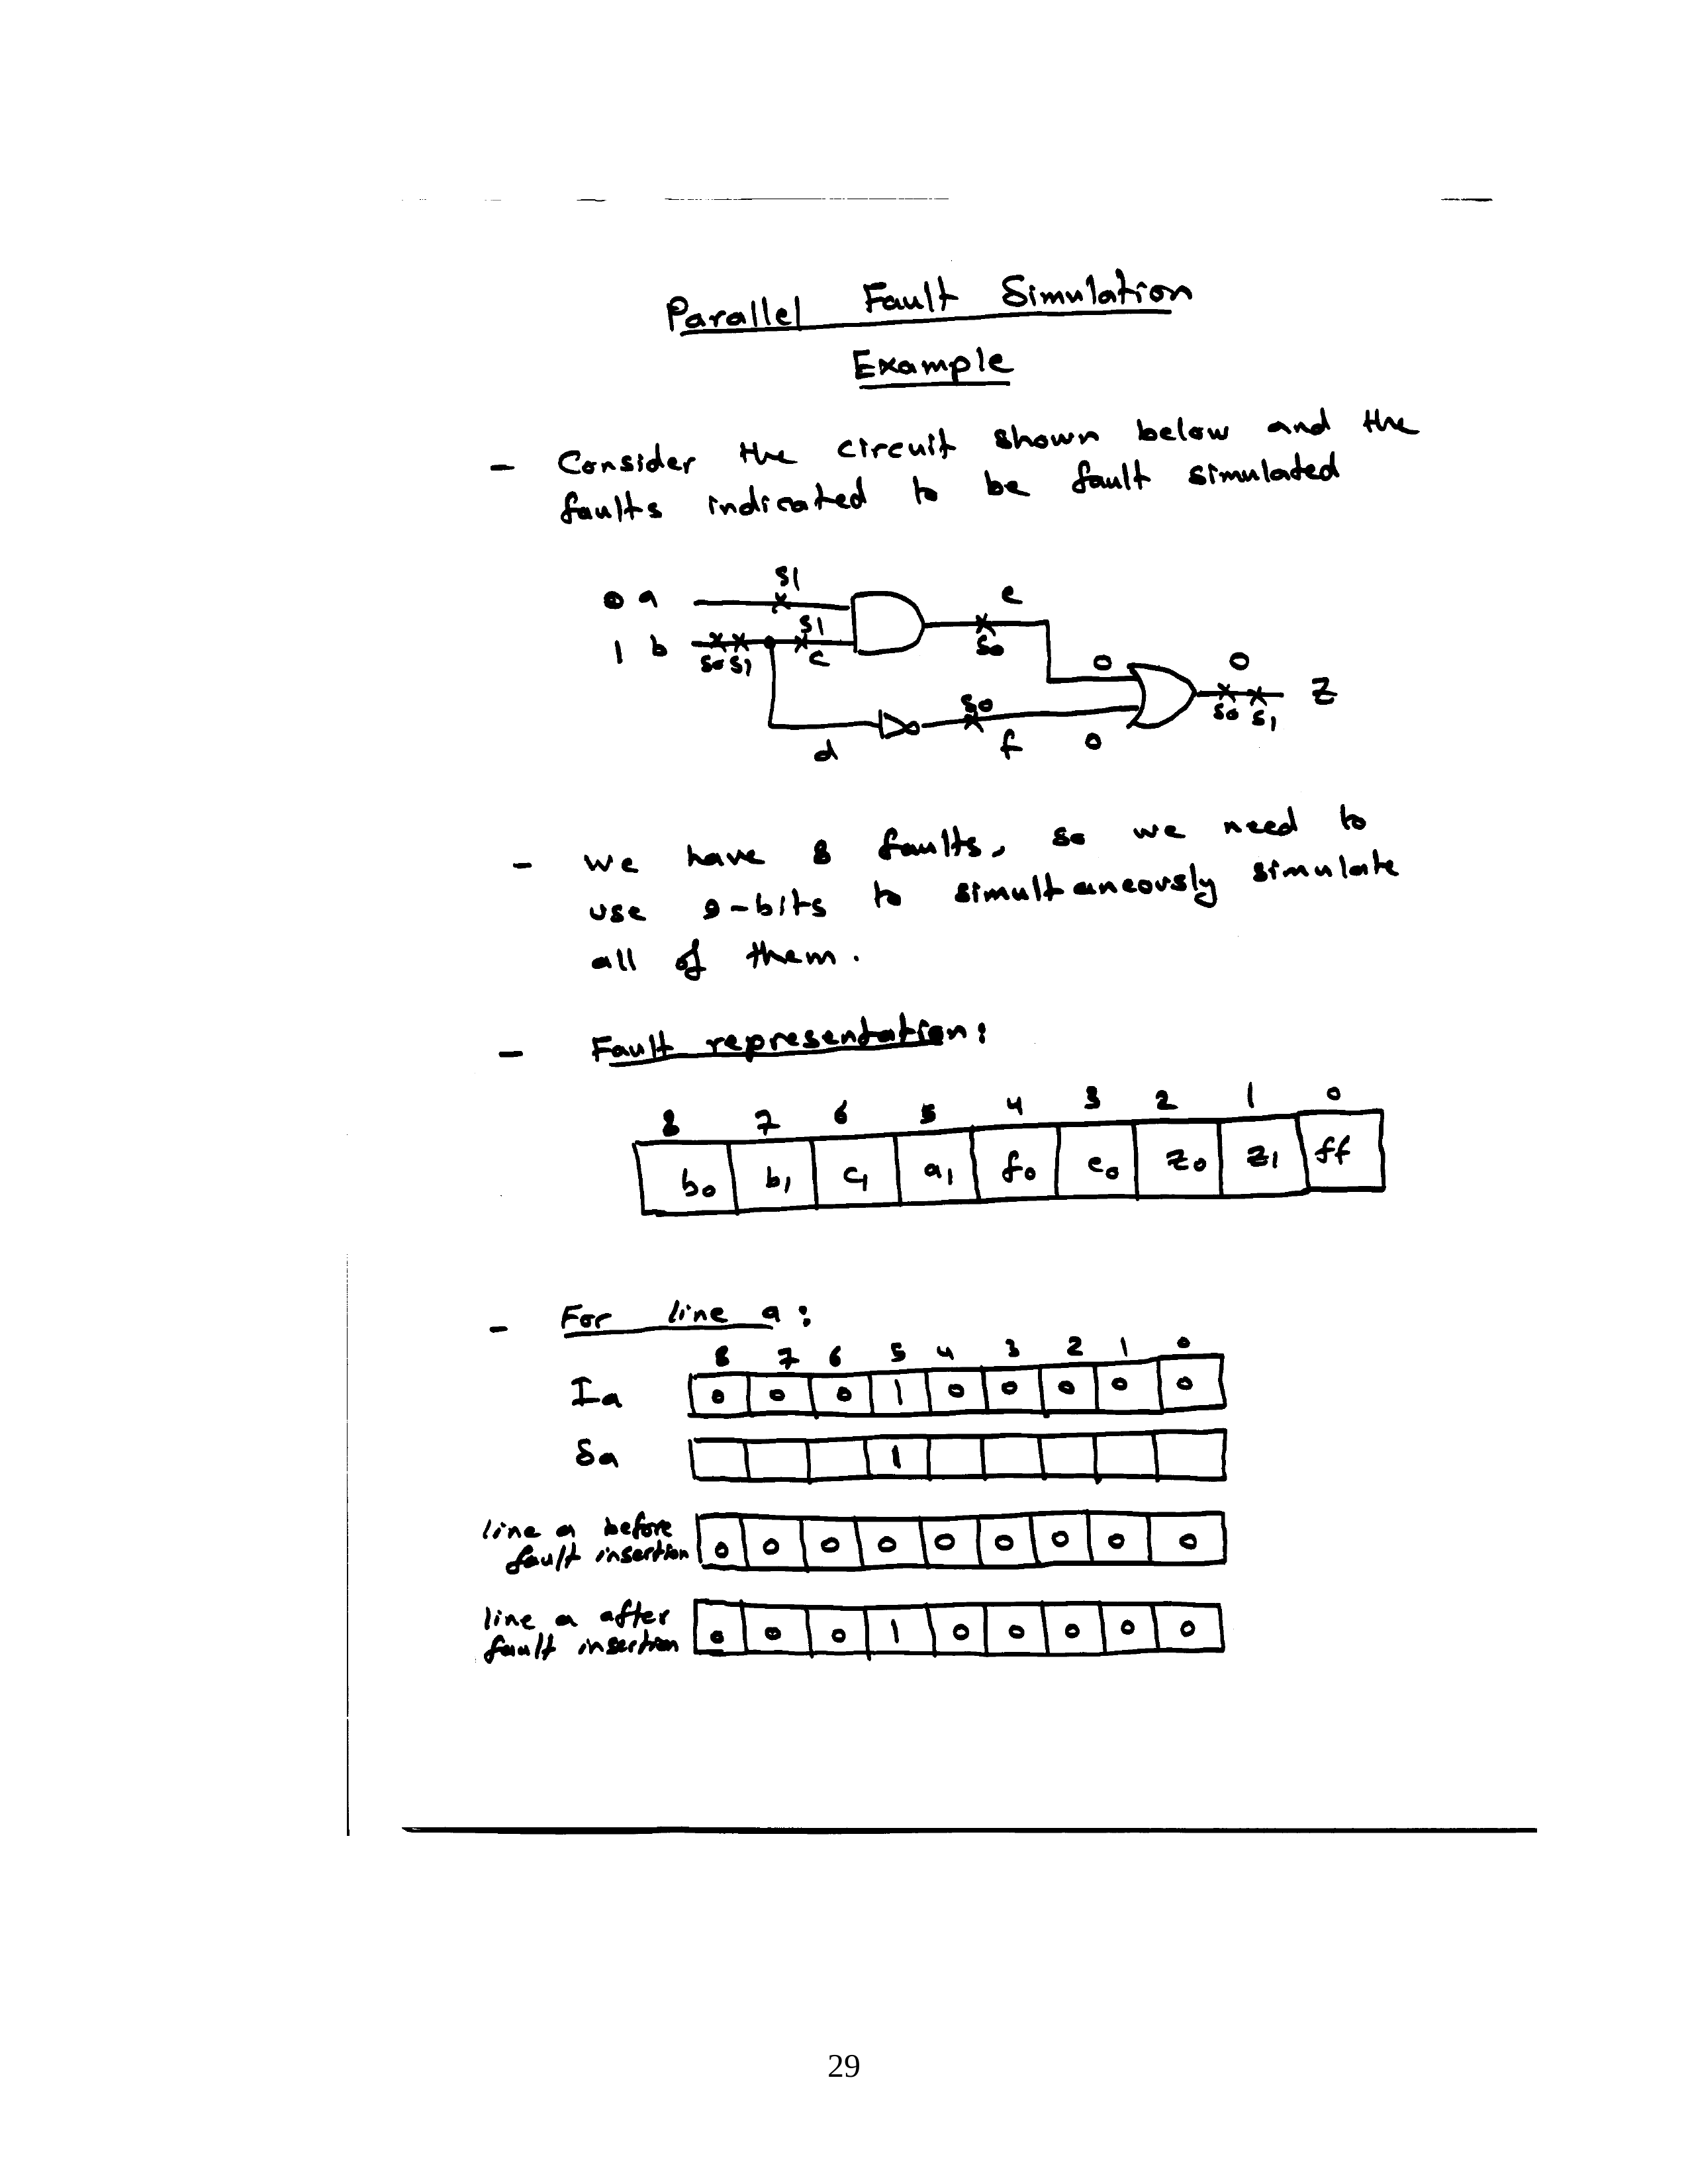 Parallel Fault Simulation
Example
- Consider the circuit shown below and the
faults indicated to be fault simulated
0 a s1 e
1 b s0 s1 s1 c s0 0 0
s0 s0 s1 Z
d f 0
- We have 8 faults, so we need to
use 9-bits to simultaneously simulate
all of them.
- Fault representation:
8 7 6 5 4 3 2 1 0
b0 b1 c1 a1 f0 e0 Z0 Z1 ff
- For line a:
8 7 6 5 4 3 2 1 0
Ia 0 0 0 1 0 0 0 0 0
Sa 1
line a before
fault insertion 0 0 0 0 0 0 0 0 0
line a after
fault insertion 0 0 0 1 0 0 0 0 0
29